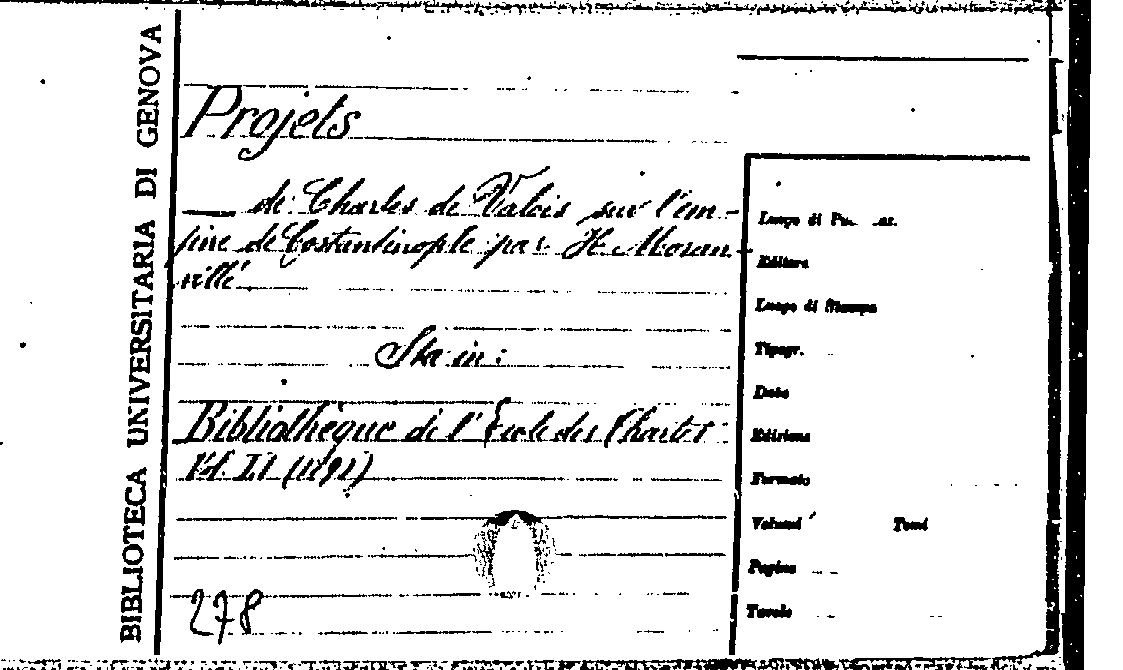 BIBLIOTECA UNIVERSITARIA DI GENOVA
Projets
— de Charles de Valois sur l'em-
pire de Costantinople par H. Moran-
villé
Sta in:
Bibliothèque de l'École des Chartes
Vol. LI (1891)
278
Luogo di Pu
Editore
Luogo di Stampa
Tipogr.
Data
Edizione
Formato
Volumi Tomi
Pagine
Tavole